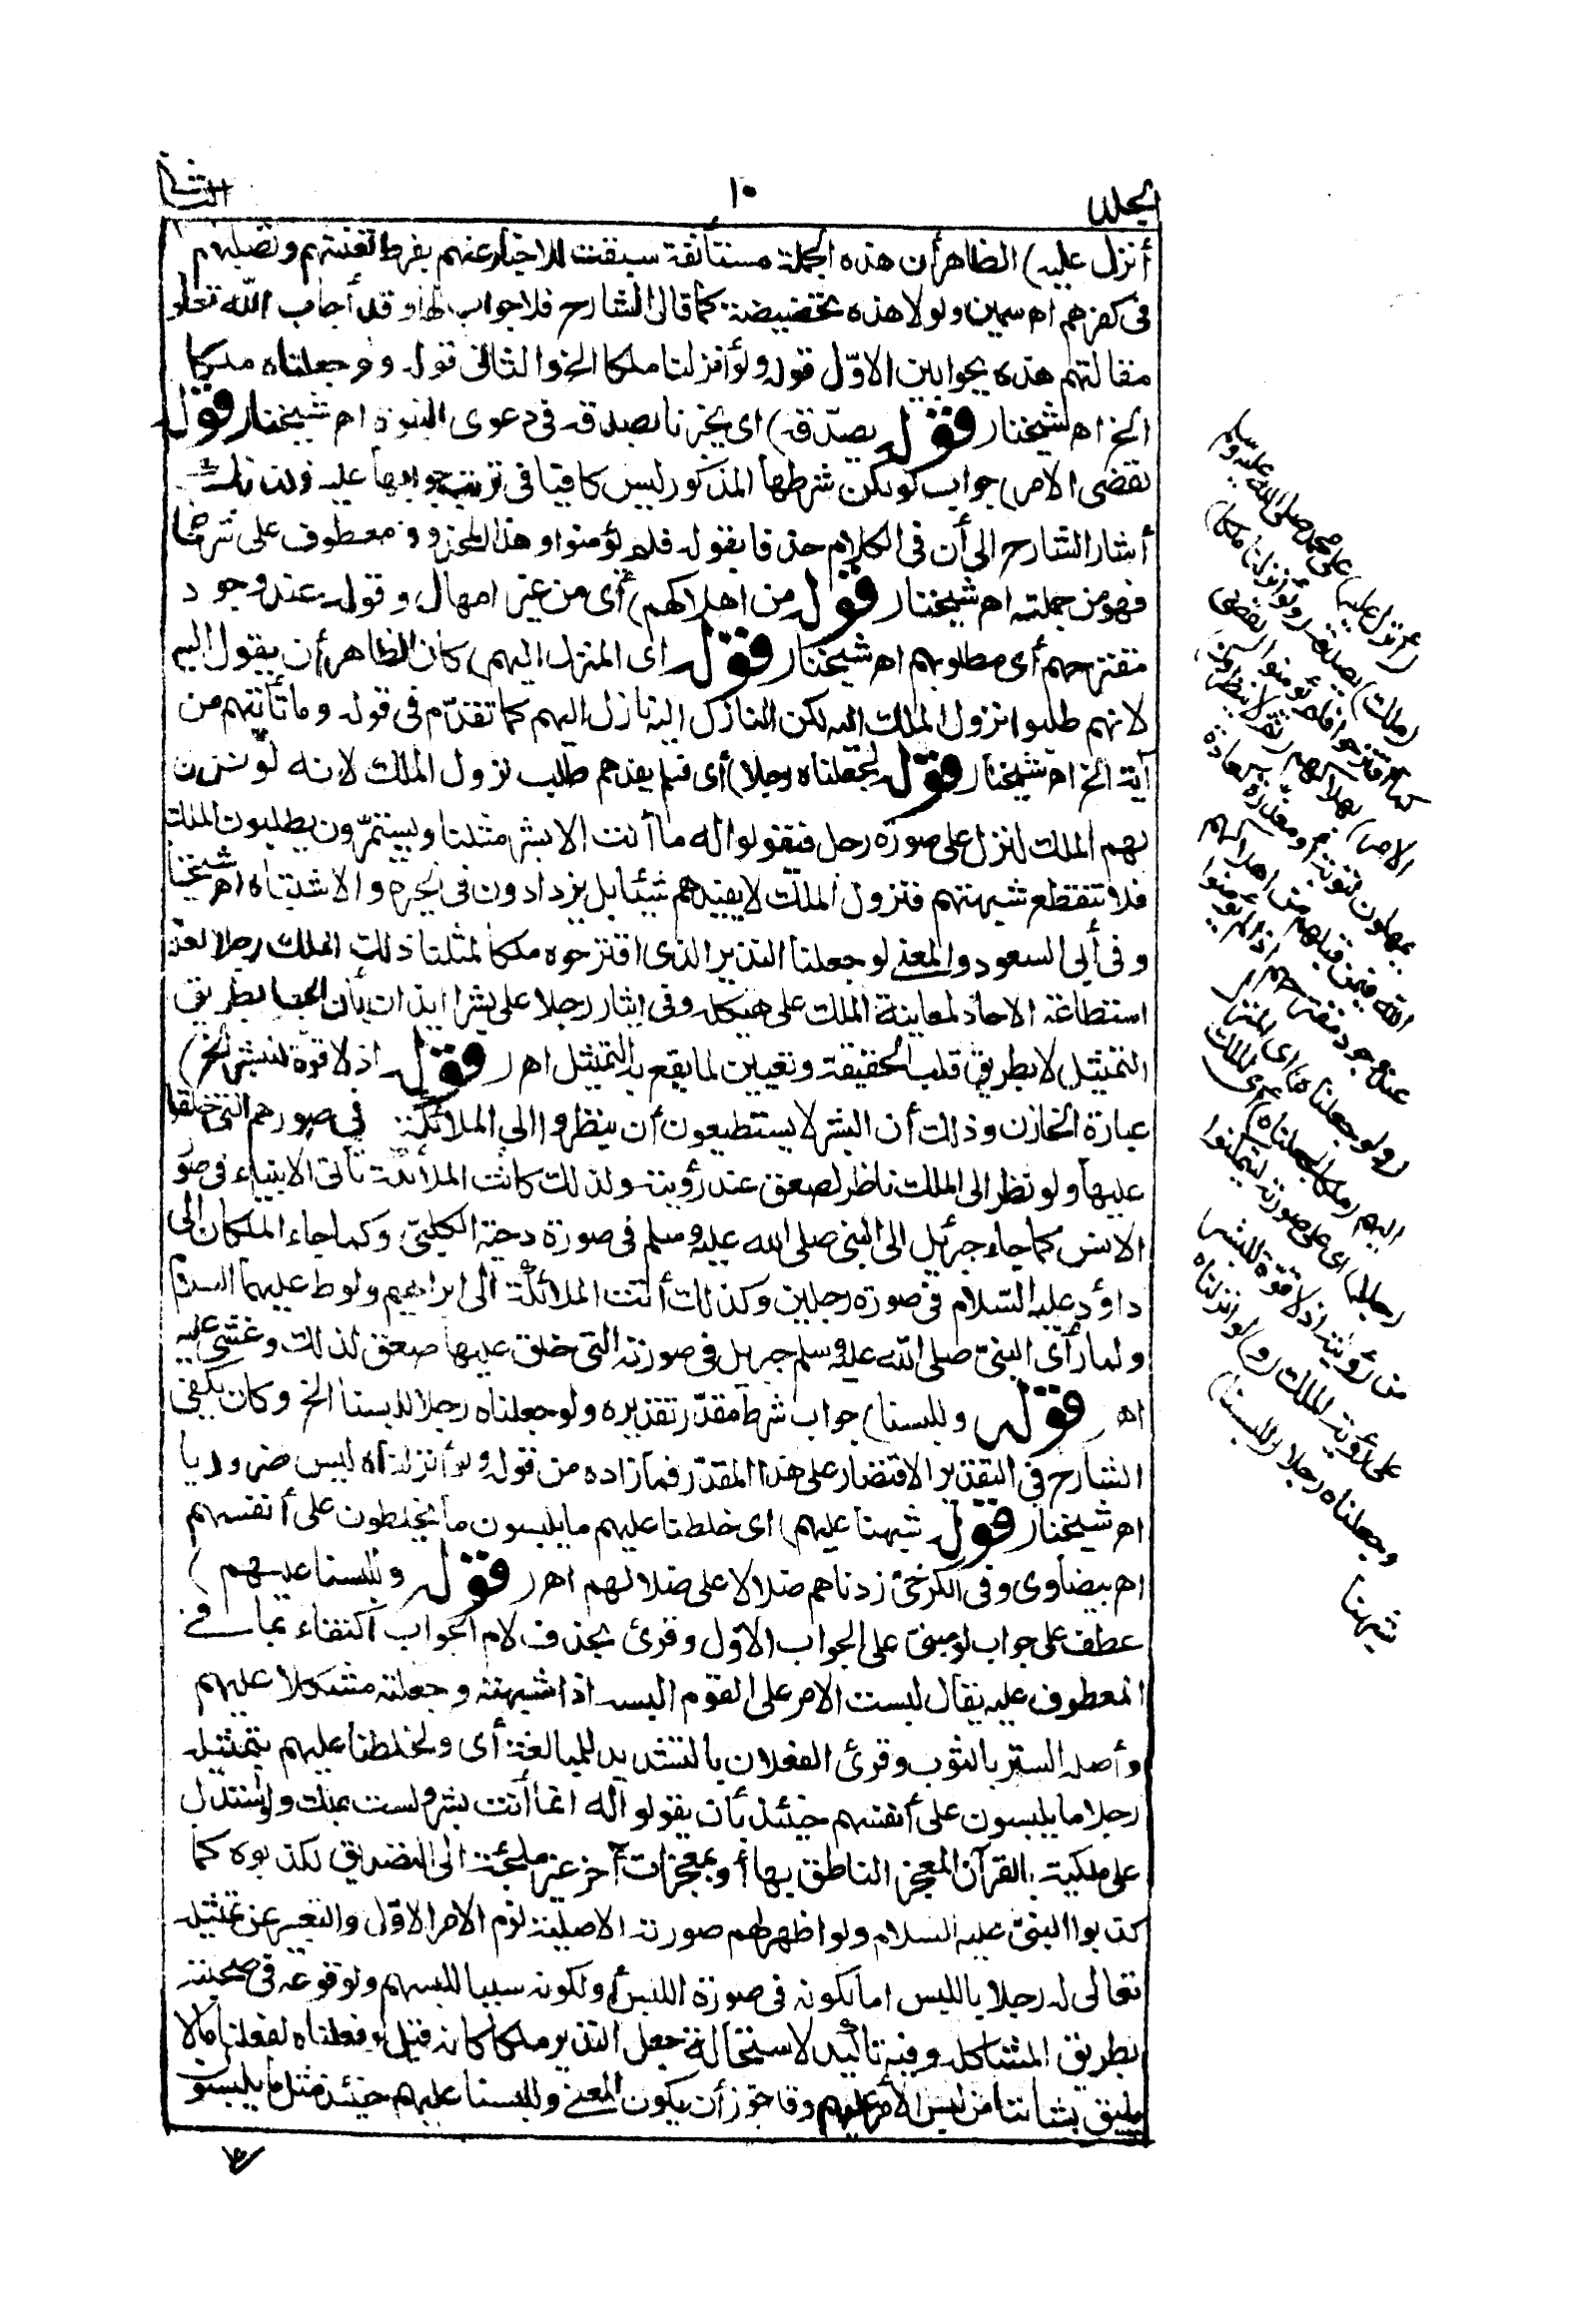 الجلد
١٠
الثاني
أنزل عليه) الظاهر أن هذه الجملة مستأنفة سيقت للاخبار عنهم بفرط تعنتهم وتصلبهم
في كفرهم اه سمين ولولا هذه تحضيضية كما قال الشارح فلا جواب لها وقد أجاب الله تعالى
مقالتهم هذه بجوابين الاوّل قوله ولو أنزلنا ملكا الخ والثاني قوله ولو جعلناه ملكا
الخ اه شيخنا (قوله يصدّقه) اى يخبرنا بصدقه في دعوى النبوة اه شيخنا (قوله
لقضى الامر) جواب لو لكن شرطها المذكور ليس كافيا في ترتب جوابها عليه فلذلك
أشار الشارح الى أن في الكلام حذفا بقوله فلم يؤمنوا وهذا المحذوف معطوف على شرطها
فهو من جملته اه شيخنا (قوله من اهلاكهم) أى من غير امهال وقوله عند وجود
مقترحهم أى مطلوبهم اه شيخنا (قوله اى المنزل اليهم) كان الظاهر أن يقول اليه
لانهم طلبوا نزول الملك اليه لكن النازل اليه نازل اليهم كما تقدّم في قوله وما تأتيهم من
آية الخ اه شيخنا (قوله لجعلناه رجلا) أى فلم يفدهم طلب نزول الملك لانه لو نزل
لهم الملك لنزل على صورة رجل فيقولوا له ما أنت الا بشر مثلنا ويستمرّون يطلبون الملك
فلا تنقطع شبهتهم فنزول الملك لا يفيدهم شيئا بل يزدادون في الحيرة والاشتباه اه شيخنا
وفي أبي السعود والمعنى لو جعلنا النذير الذى اقترحوه ملكا لمثلنا ذلك الملك رجلا لعدم
استطاعة الاحاد لمعاينة الملك على هيكله وفي ايثار رجلا على بشرا ايذان بأن الجعل بطريق
التمثيل لا بطريق قلب الحقيقة وتعيين لما يقع به التمثيل اه (قوله اذ لا قوة للبشر الخ)
عبارة الخازن وذلك أن البشر لا يستطيعون أن ينظروا الى الملائكة في صورهم التى خلقوا
عليها ولو نظر الى الملك ناظر لصعق عند رؤيته ولذلك كانت الملائكة تأتى الانبياء في صورة
الانس كما جاء جبريل الى النبي صلى الله عليه وسلم في صورة دحية الكلبىّ وكما جاء الملكان الى
داؤد عليه السلام في صورة رجلين وكذلك أتت الملائكة الى ابراهيم ولوط عليهما السلام
ولما رأى النبىّ صلى الله عليه وسلم جبريل في صورته التى خلق عليها صعق لذلك وغشى عليه
اه (قوله وللبسنا) جواب شرط مقدّر تقديره ولو جعلناه رجلا للبسنا الخ وكان يكفى
الشارح في التقدير الاقتصار على هذا المقدّر فما زاده من قوله ولو أنزلناه ليس ضروريا
اه شيخنا (قوله شبهنا عليهم) اى خلطنا عليهم ما يلبسون ما يخلطون على أنفسهم
اه بيضاوى وفي الكرخى زدناهم ضلالا على ضلالهم اه (قوله وللبسنا عليهم)
عطف على جواب لو مبنىّ على الجواب الاوّل وقرئ بحذف لام الجواب اكتفاء بما في
المعطوف عليه يقال لبست الامر على القوم البسه اذا شبهته وجعلته مشكلا عليهم
وأصله الستر بالثوب وقرئ الفعلان بالتشديد للمبالغة أى ولخلطنا عليهم بتمثيله
رجلا ما يلبسون على أنفسهم حينئذ بأن يقولوا له انما أنت بشر ولست بملك ولو استدل
على ملكيته بالقرآن المعجز الناطق بها أو بمعجزات أخر غير ملجئة الى التصديق لكذبوه كما
كذبوا النبىّ عليه السلام ولو اظهر لهم صورته الاصلية لزم الامر الاوّل والتعبير عن تمثيله
تعالى له رجلا باللبس اما لكونه في صورة اللبس أو لكونه سببا للبسهم ولوقوعه في صحبته
بطريق المشاكلة وفيه تأكيد لاستحالة جعل النذير ملكا كانه قيل لو فعلناه لفعلنا ما لا
يليق بشأننا من لبس الامر عليهم وقد جوّز أن يكون المعنى وللبسنا عليهم حينئذ مثل ما يلبسون
(أنزل عليه) على محمد صلى الله عليه وسلم
(ملك) يصدقه (ولو أنزلنا ملكا)
كما اقترحوا فلم يؤمنوا (لقضى
الامر) بهلاكهم (ثم لا ينظرون)
يمهلون لتوبة أو معذرة كعادة
الله فيمن قبلهم من اهلاكهم
عند وجود مقترحهم اذا لم يؤمنوا
(ولو جعلناه) اى المنزل
اليهم (ملكا لجعلناه) أى الملك
(رجلا) اى على صورته ليتمكنوا
من رؤيته اذ لا قوة للبشر
على رؤية الملك (و) لو أنزلناه
وجعلناه رجلا (للبسنا)
شبهنا